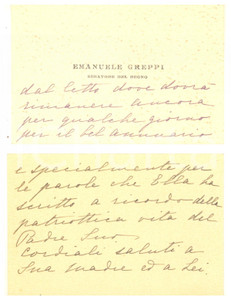 EMANUELE GREPPI
SENATORE DEL REGNO
dal letto dove dovrà
rimanere ancora
per qualche giorno
per il bel annuario
e specialmente per
le parole che Ella ha
scritto a ricordo della
patriottica vita del
Padre Suo.
Cordiali saluti a
Sua madre ed a Lei.